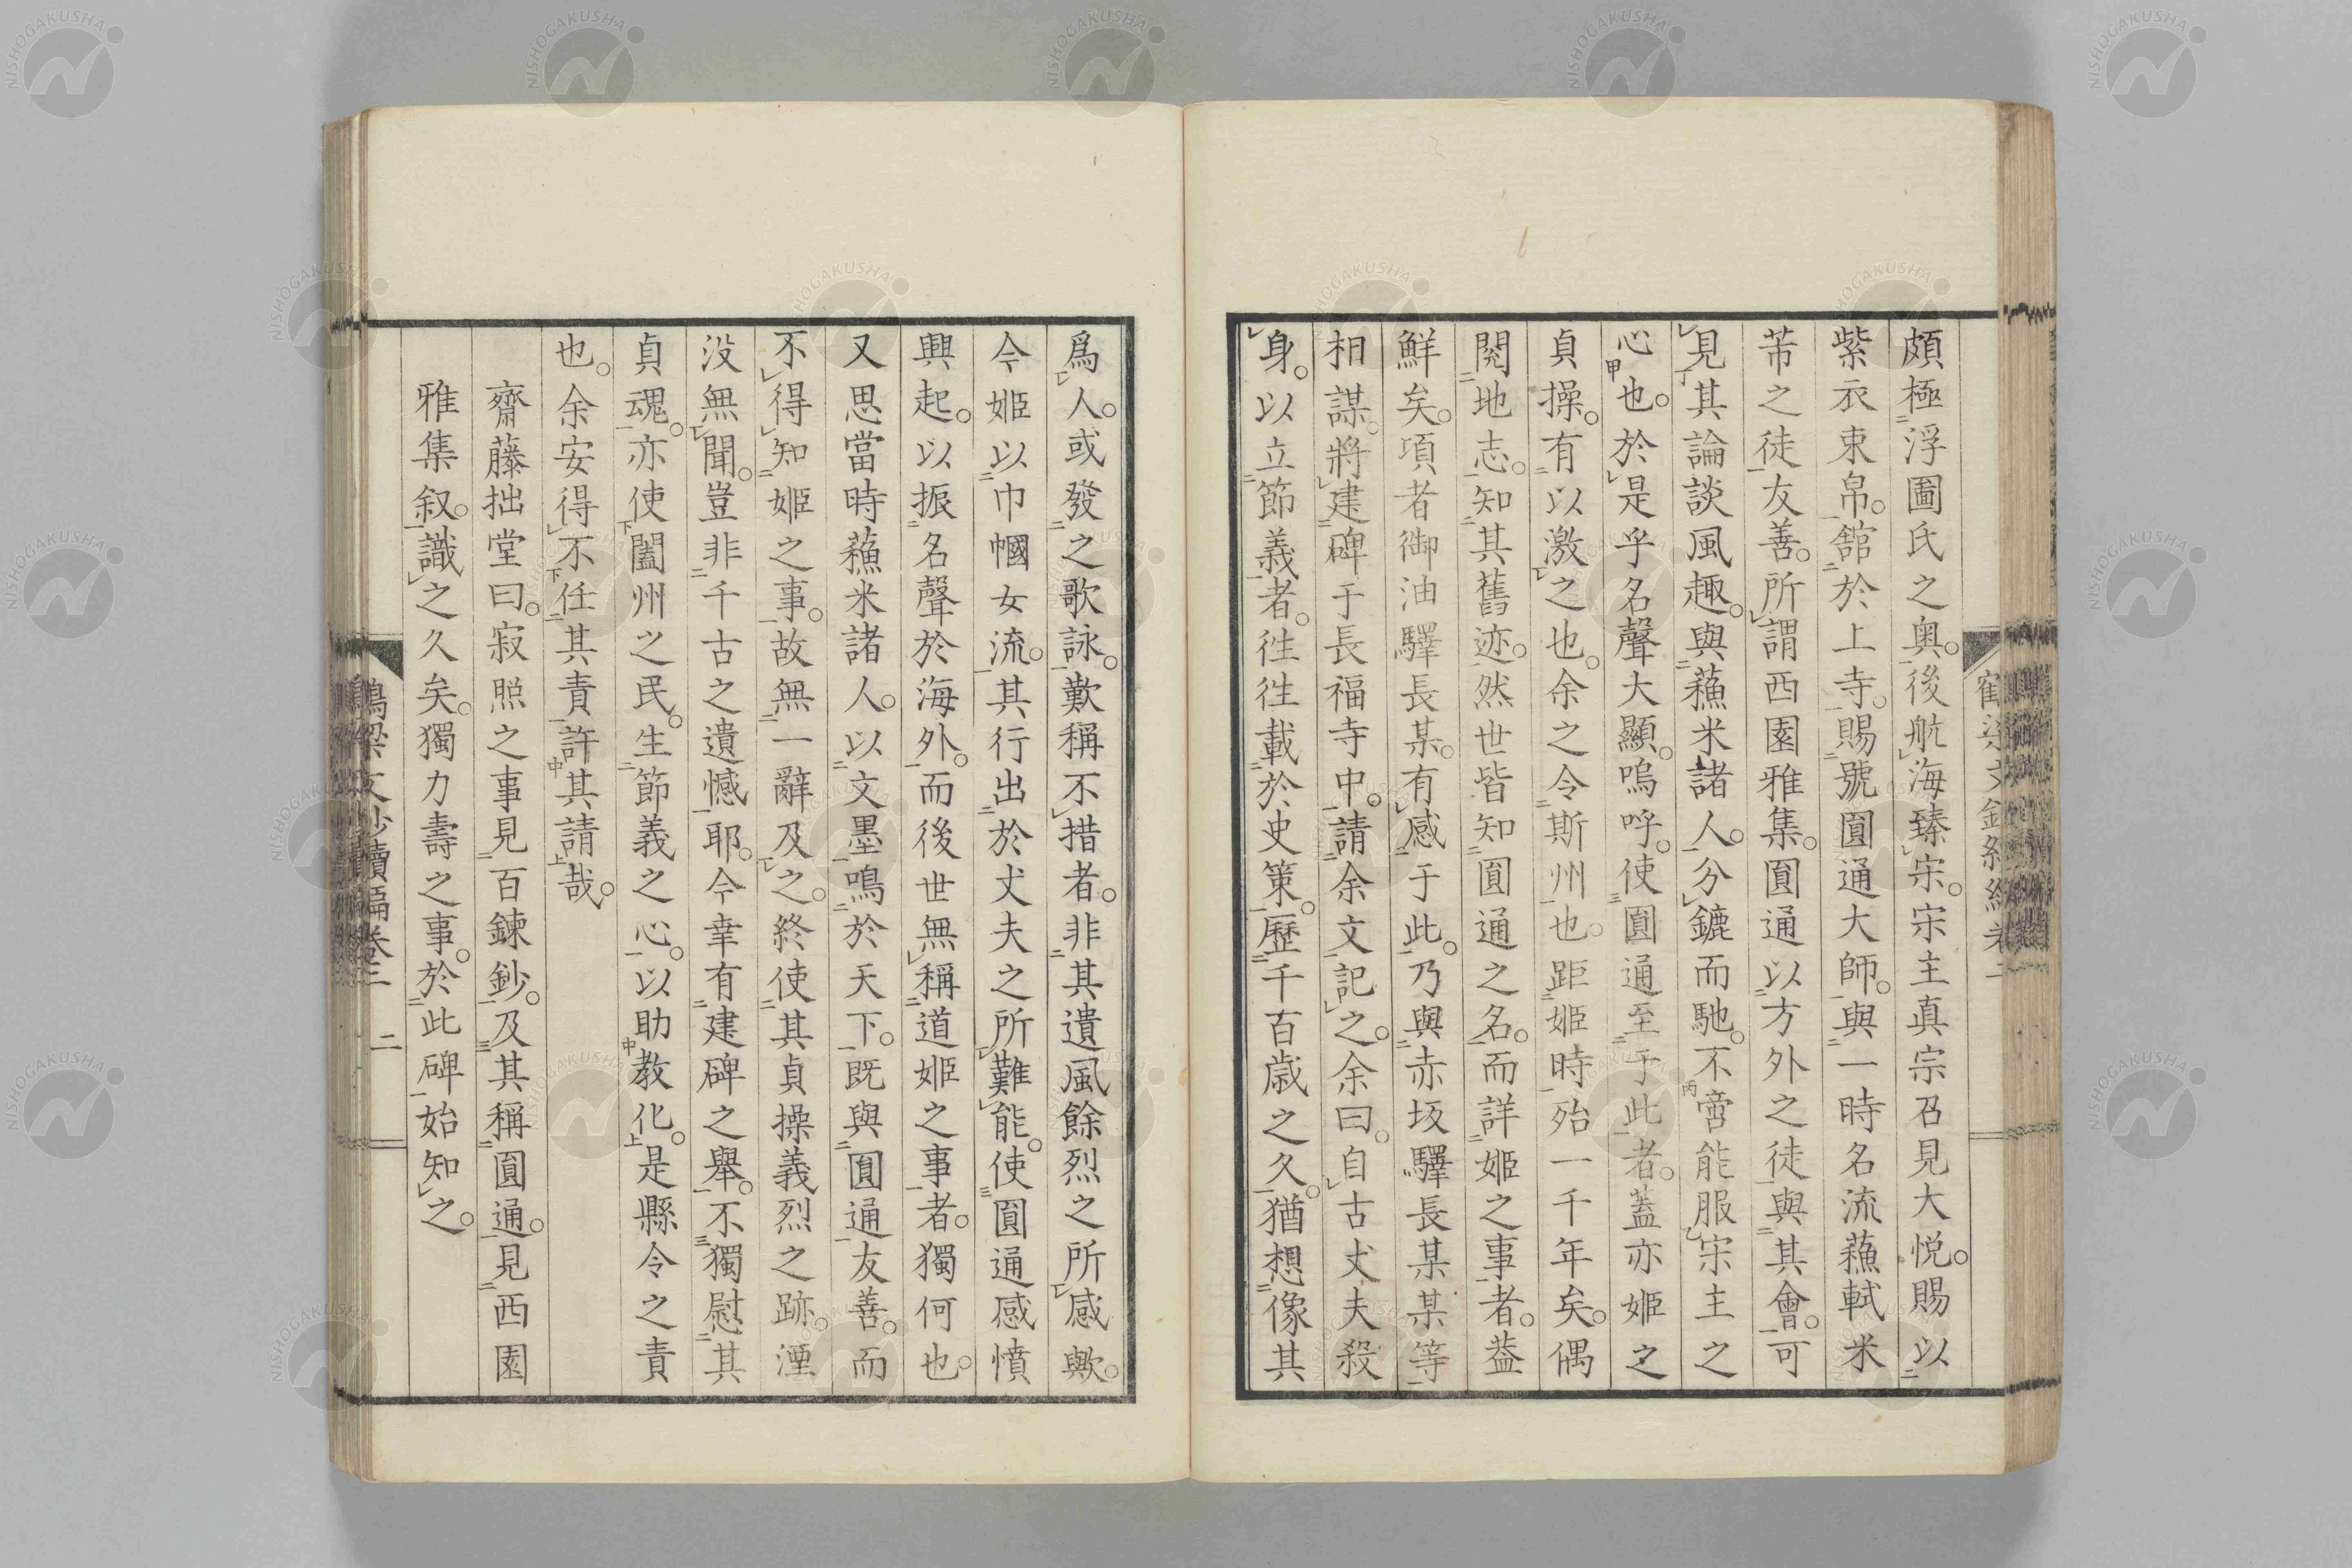 頗極浮圖氏之奥。後航海臻宋。宋主真宗召見大悦。賜以
紫衣束帛。舘於上寺。賜號圓通大師。與一時名流蘓軾米
芾之徒友善。所謂西園雅集。圓通以方外之徒與其會。可
見其論談風趣。與蘓米諸人。分鑣而馳。不啻能服宋主之
心也。於是乎名聲大顯。嗚呼。使圓通至于此者。蓋亦姬之
貞操。有以激之也。余之令斯州也。距姬時殆一千年矣。偶
閲地志。知其舊迹。然世皆知圓通之名。而詳姬之事者。葢
鮮矣。項者御油驛長某。有感于此。乃與赤坂驛長某某等
相謀。將建碑于長福寺中。請余文記之。余曰。自古丈夫殺
身。以立節義者。徃徃載於史策。歷千百歳之久。猶想像其
爲人。或發之歌詠。歎稱不措者。非其遺風餘烈之所感歟。
今姬以巾幗女流。其行出於丈夫之所難能。使圓通感憤
興起。以振名聲於海外。而後世無稱道姬之事者。獨何也。
又思當時蘓米諸人。以文墨鳴於天下。既與圓通友善。而
不得知姬之事。故無一辭及之。終使其貞操義烈之跡。湮
没無聞。豈非千古之遺憾耶。今幸有建碑之舉。不獨慰其
貞魂。亦使闔州之民。生節義之心。以助教化。是縣令之責
也。余安得不任其責許其請哉。
齋藤拙堂曰。寂照之事見百鍊鈔。及其稱圓通。見西園
雅集叙。識之久矣。獨力壽之事。於此碑始知之。
鶴梁文鈔續編卷二
二
NISHOGAKUSHA